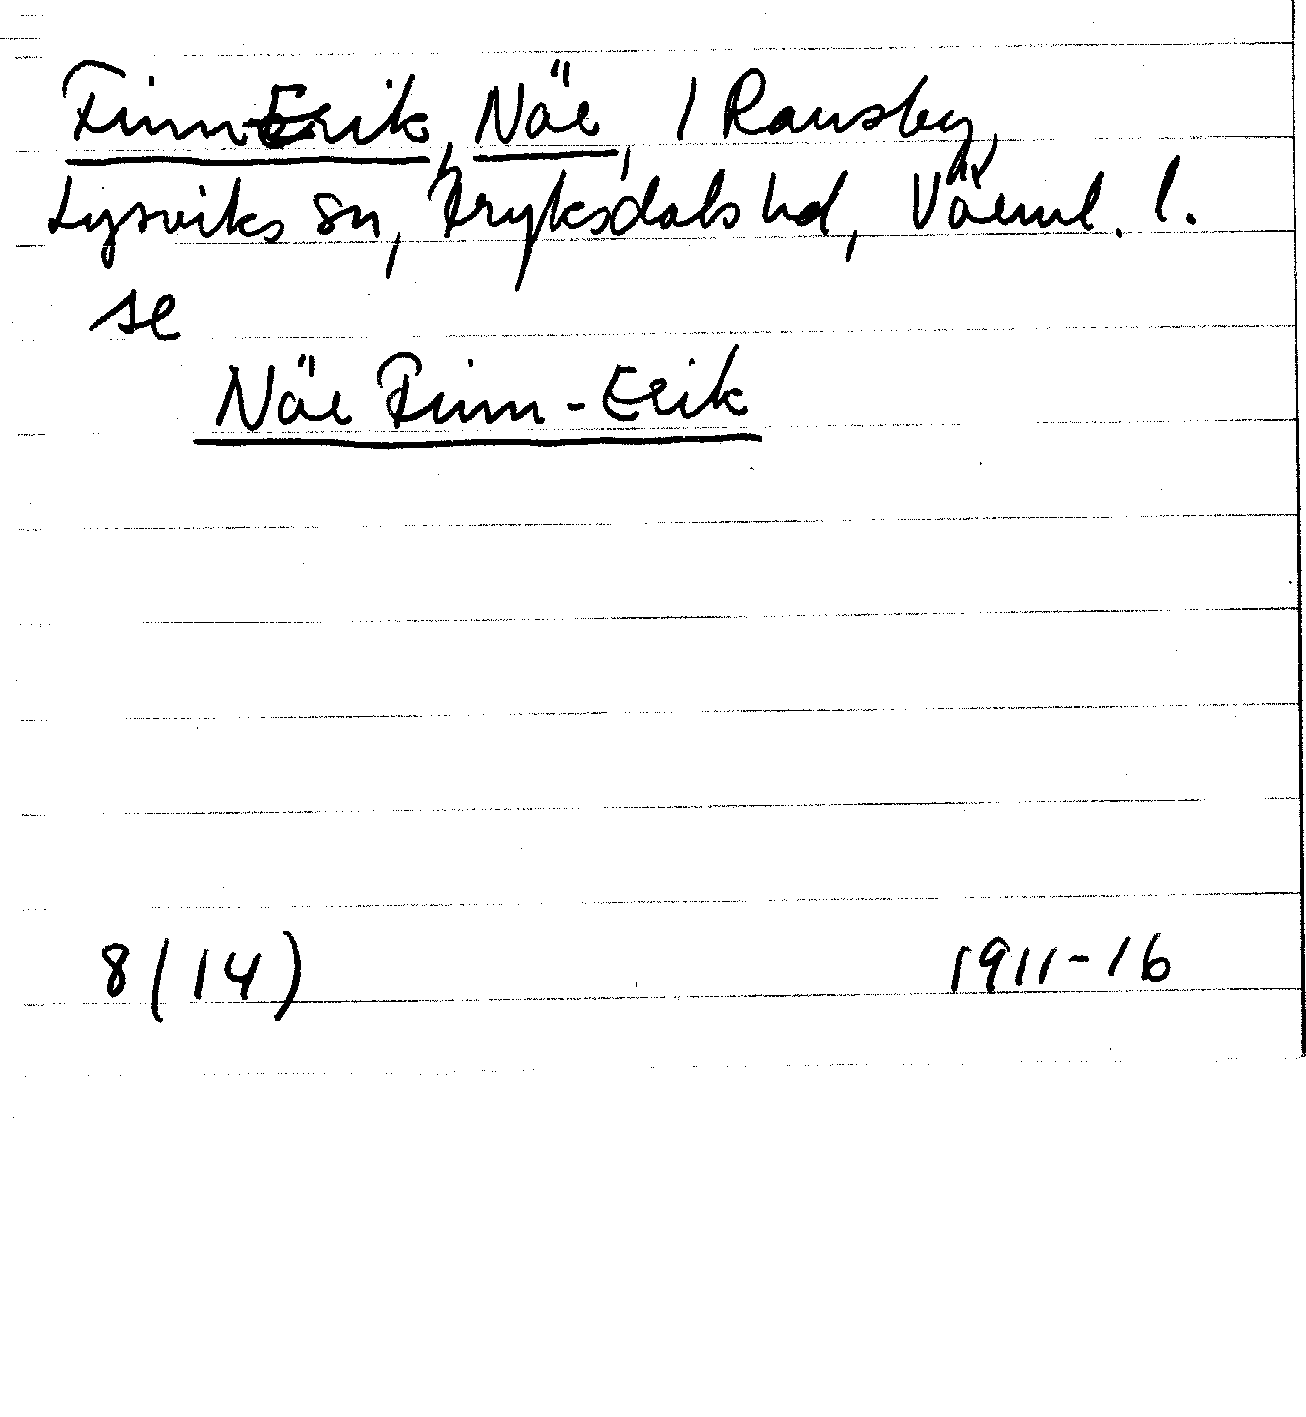 Finn-Erik, Näe, / Ransby,
Lysviks sn, Fryksdals hd, Värml. l.
se
Näe Finn-Erik
8(14) 1911-16